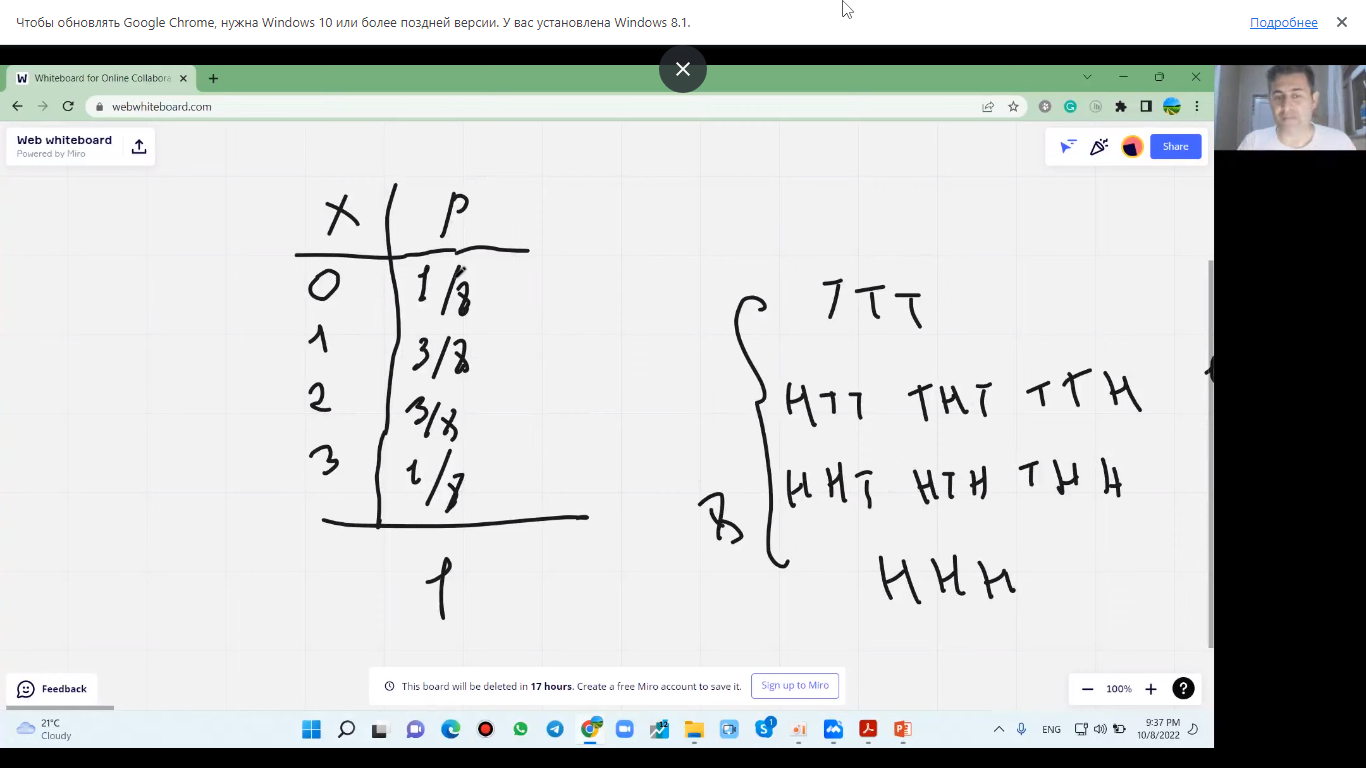 Чтобы обновлять Google Chrome, нужна Windows 10 или более поздней версии. У вас установлена Windows 8.1.
Подробнее
Whiteboard for Online Collabora
webwhiteboard.com
Web whiteboard
Powered by Miro
Share
X P
0 1/8
1 3/8
2 3/8
3 1/8
1
8
T T T
HTT THT TTH
HHT HTH THH
HHH
This board will be deleted in 17 hours. Create a free Miro account to save it.
Sign up to Miro
Feedback
100%
21°C
Cloudy
ENG
9:37 PM
10/8/2022